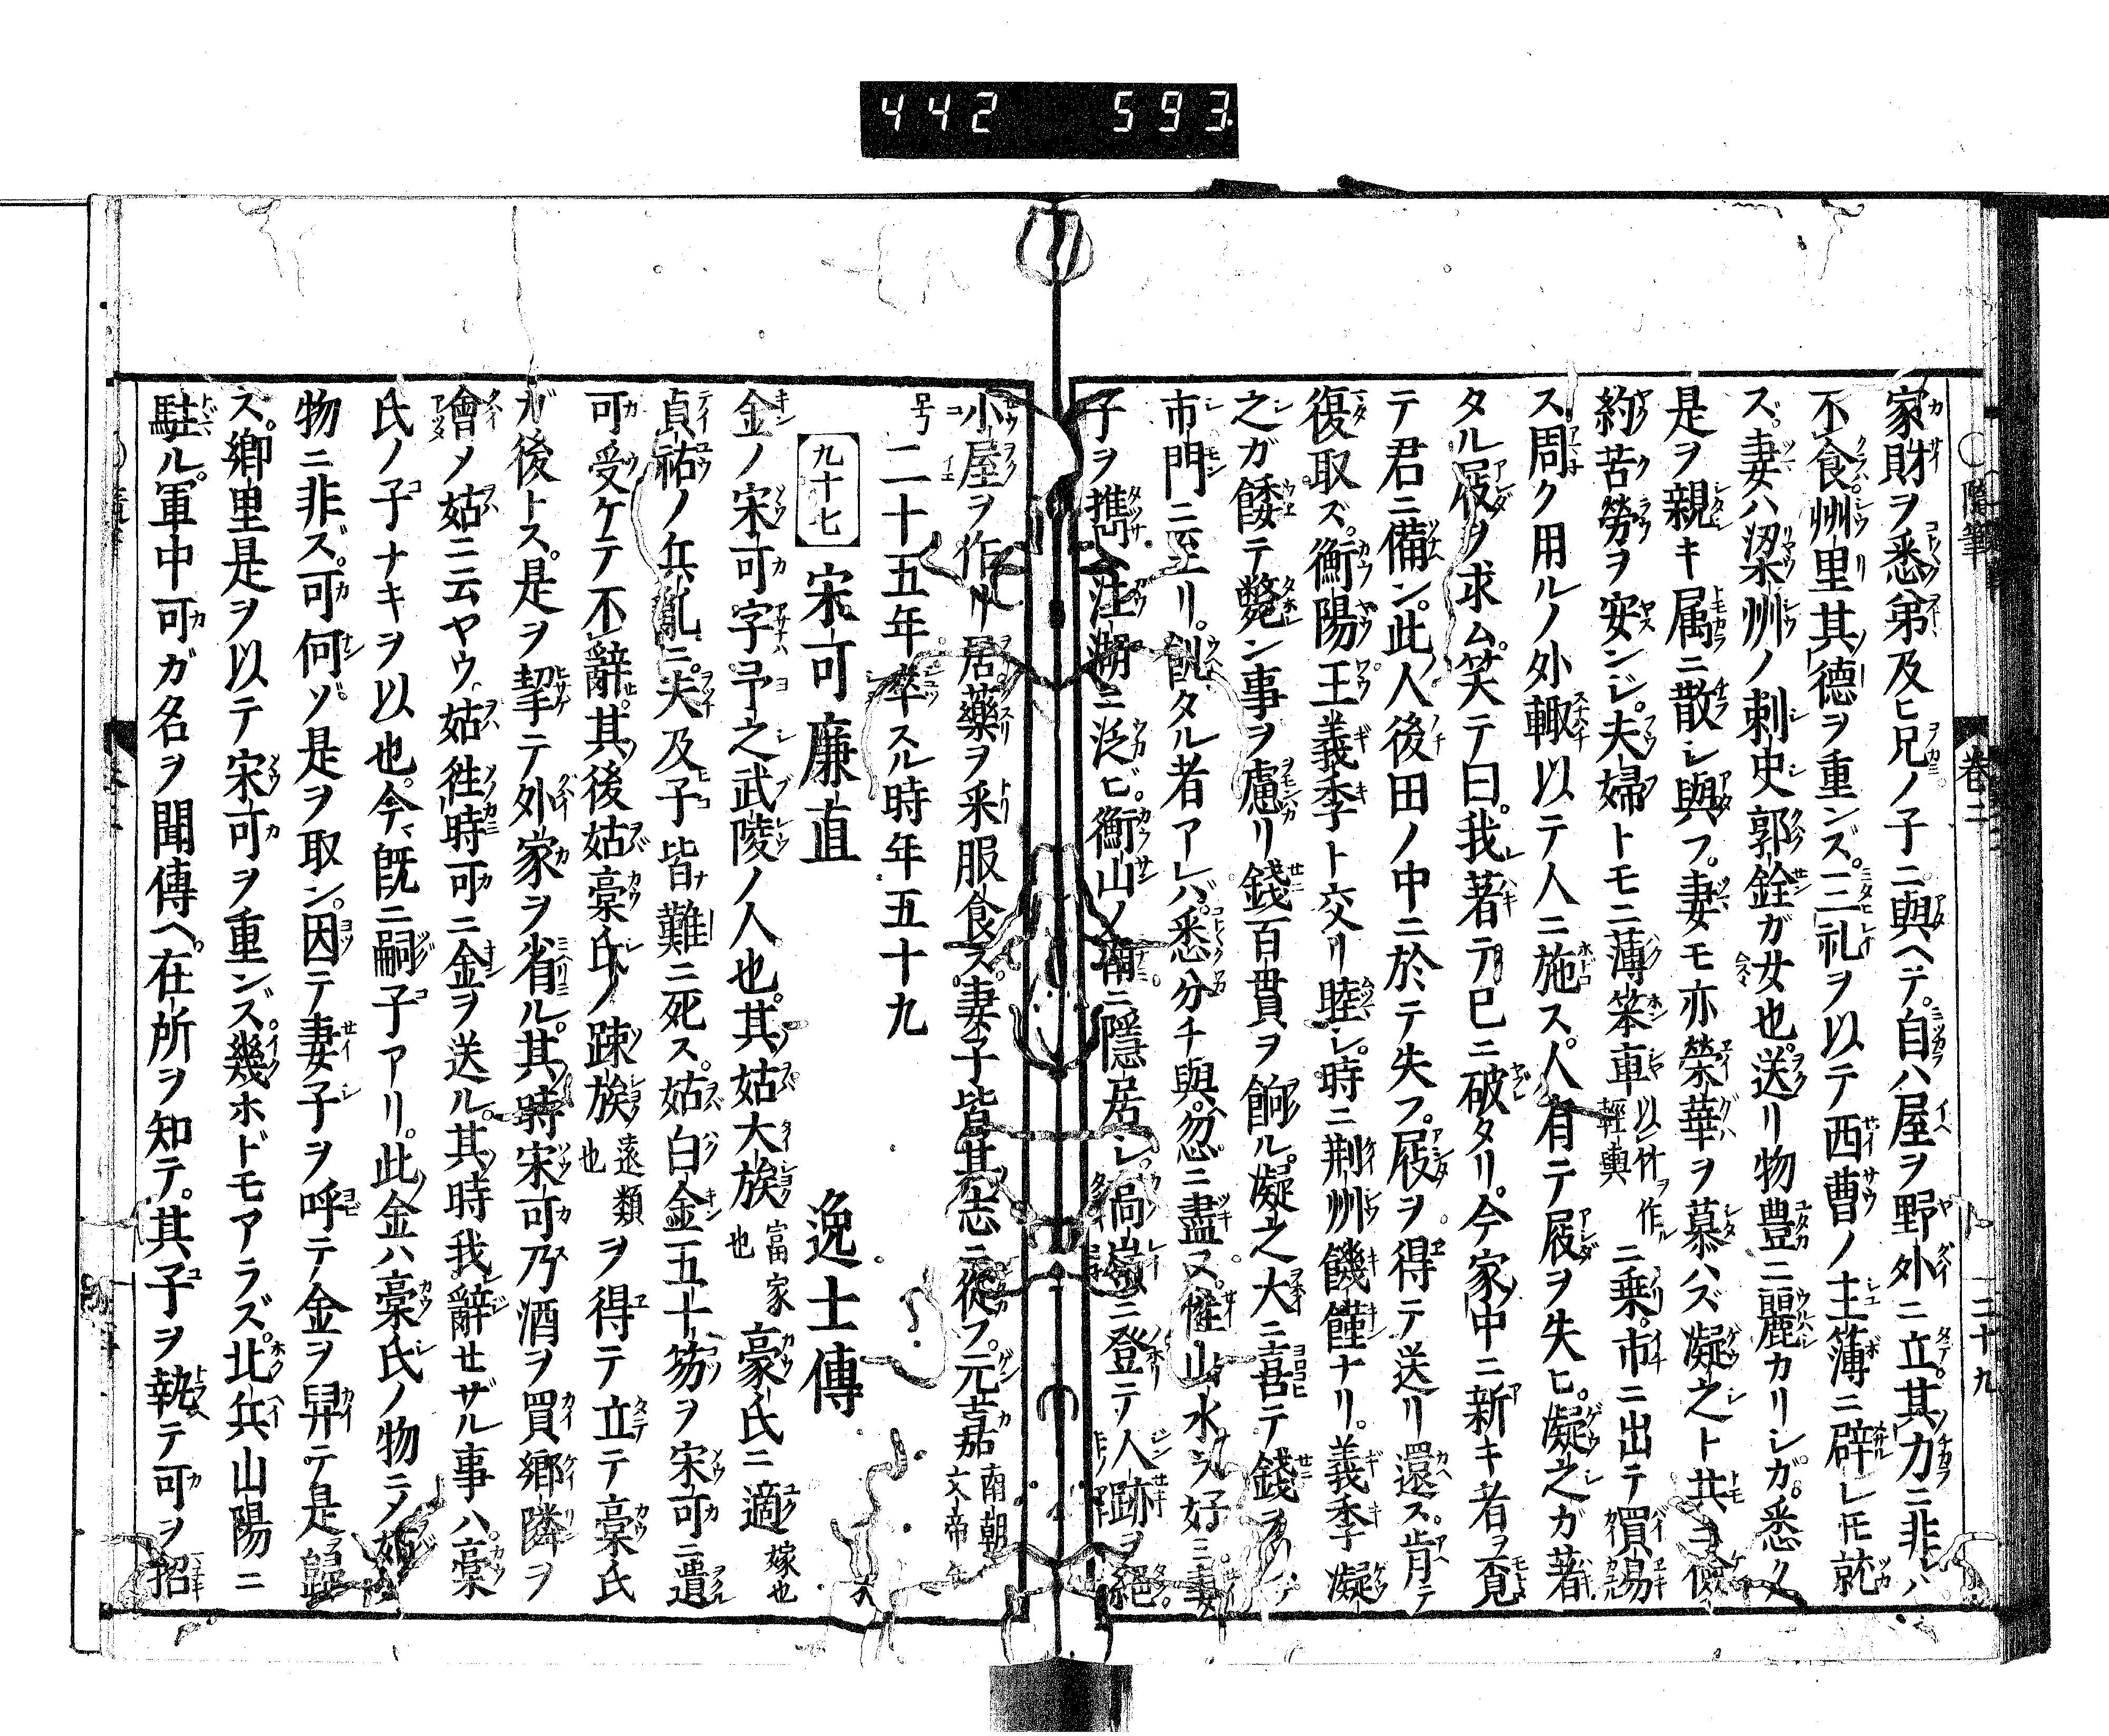 442 593
家財ヲ悉弟及ヒ兄ノ子ニ與ヘテ。自ハ屋ヲ野外ニ立。其力ニ非レハ
不食州里其德ヲ重ンズ。三礼ヲ以テ西曹ノ主簿ニ辟レ𪜈就
ズ。妻ハ梁州ノ刺史郭銓ガ女也。送リ物豊ニ麗カリシガ。悉ク
是ヲ親キ属ニ散シ與フ。妻モ亦榮華ヲ慕ハズ凝之ト共ヨ儉
約苦勞ヲ安ンジ。夫婦トモニ薄笨車以竹ヲ作ル輕輿ニ乘。市ニ出テ買易
ス。周ク用ルノ外輙以テ人ニ施ス。人有テ屐ヲ失ヒ。凝之ガ著
タル屐ヲ求ム。笑テ曰。我著テ巳ニ破タリ。今家中ニ新キ者ヲ覓
テ君ニ備ン。此人後田ノ中ニ於テ失フ屐ヲ得テ送リ還ス肯テ
復取ズ。衡陽王義季ト交リ睦シ。時ニ荆州饑饉ナリ。義季凝
之ガ餧テ斃ン事ヲ慮リ錢百貫ヲ餉ル。凝之大ニ喜テ錢ヲ
市門ニ至リ。飢タル者アレバ。悉分チ與。忽ニ盡ヌ。惟山水ヲ好ミ妻
子ヲ攜ヘ江湖ニ泛ビ。衡山ノ南ニ隱居シ。高嶺ニ登テ人跡ヲ絕。
小屋ヲ作リ居。藥ヲ采服食ス。妻子皆其志ニ從フ。元嘉南朝文帝年
号二十五年卒スル時年五十九
九十七 宋可廉直 逸士傳
金ノ宋可字予之武陵ノ人也。其姑大族富家也豪氏ニ適嫁也
貞祐ノ兵亂ニ夫及子皆難ニ死ス。姑白金五十笏ヲ宋可ニ遺
可受ケテ不辭。其後姑藁氏ノ踈族遠類也ヲ得テ立テ藁氏
ガ後トス。是ヲ挈テ外家ヲ省ル。其時宋可乃酒ヲ買鄉隣ヲ
會メ姑ニ云ヤウ。姑徃時可ニ金ヲ送ル。其時我辭セザル事ハ藁
氏ノ子ナキヲ以也。今既ニ嗣子アリ。此金ハ藁氏ノ物ニメ姑
物ニ非ズ。可何ゾ是ヲ取ン。因テ妻子ヲ呼テ金ヲ舁テ是歸
ス。鄉里是ヲ以テ宋可ヲ重ンズ。幾ホドモアラズ。北兵山陽ニ
駐ル。軍中可ガ名ヲ聞傳ヘ。在所ヲ知テ。其子ヲ執テ可ヲ招
卷二 二十九